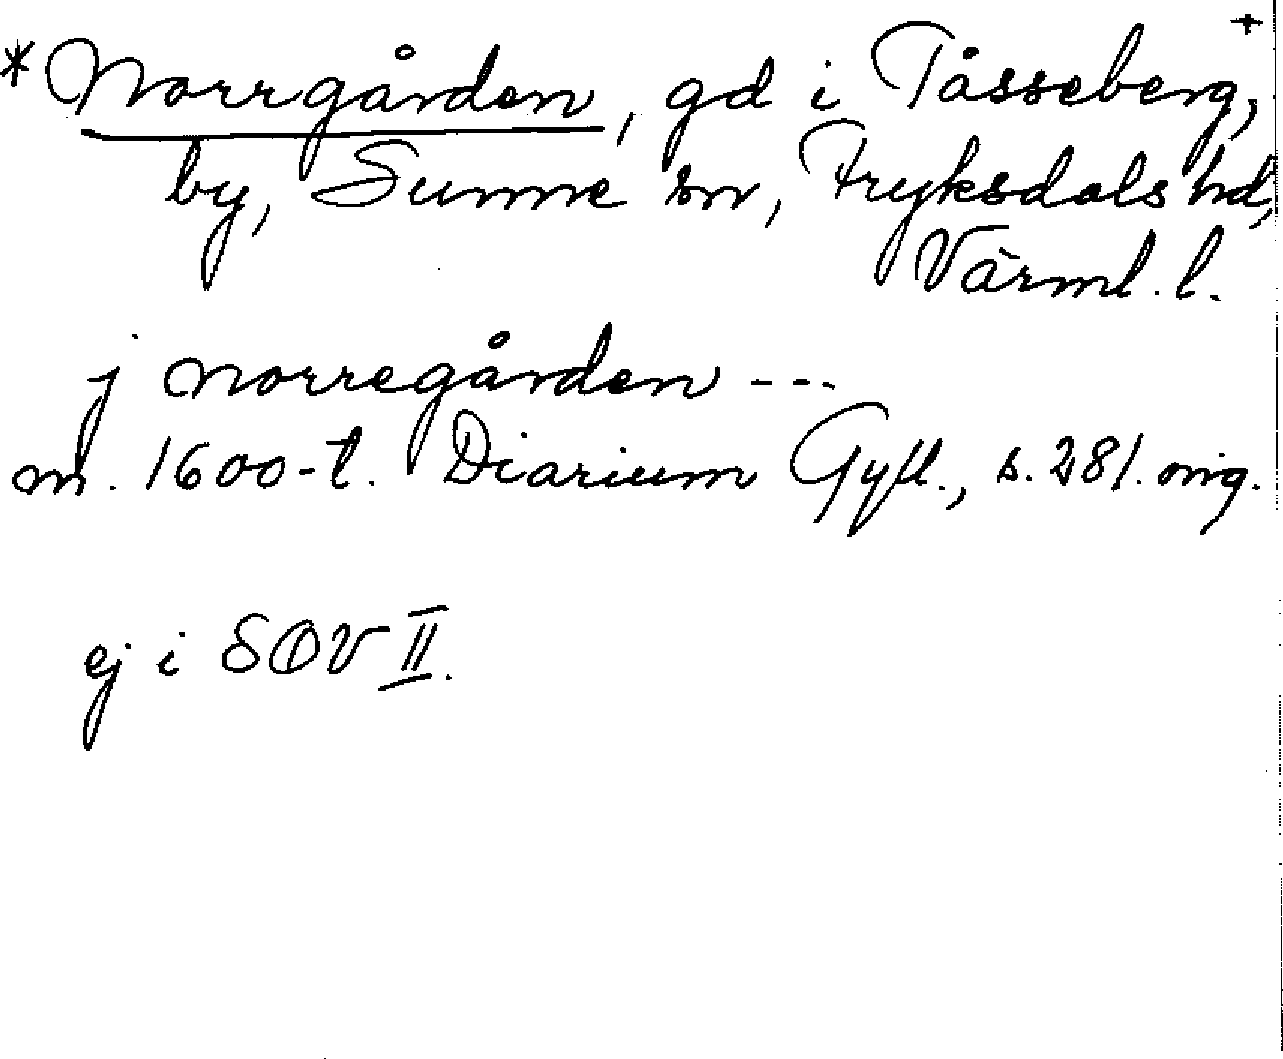 +
* Norrgården, gd i Tåsseberg,
by, Sunne sn, Fryksdals hd,
Värml. l.
j norregården ---
m. 1600-t. Diarium Gyll., s. 281. orig.
ej i SOV II.